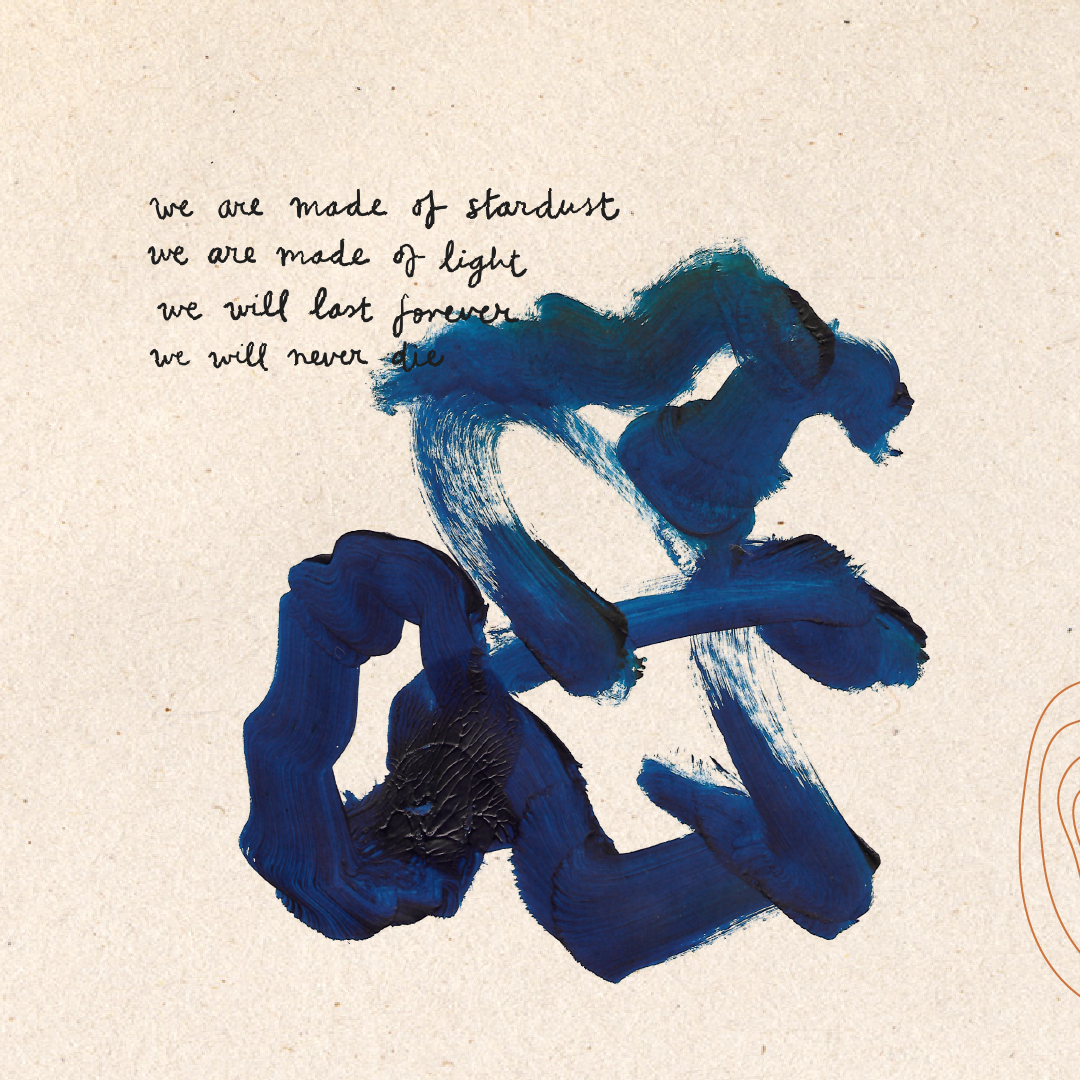 we are made of stardust
we are made of light
we will last forever
we will never die